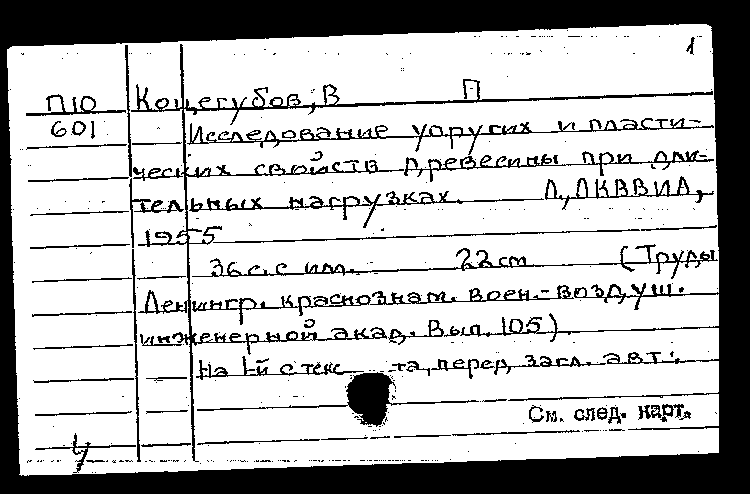 1
П10 Кощегубов, В П
601 Исследование упругих и пласти-
ческих свойств древесины при дли-
тельных нагрузках. Л., ЛКВВИА,
1955
36 с. с илл. 22 см (Труды
Ленингр. краснознам. воен.-воздуш.
инженерной акад. Вып. 105).
На 1-й с текс та, перед загл. авт.:
См. след. карт.